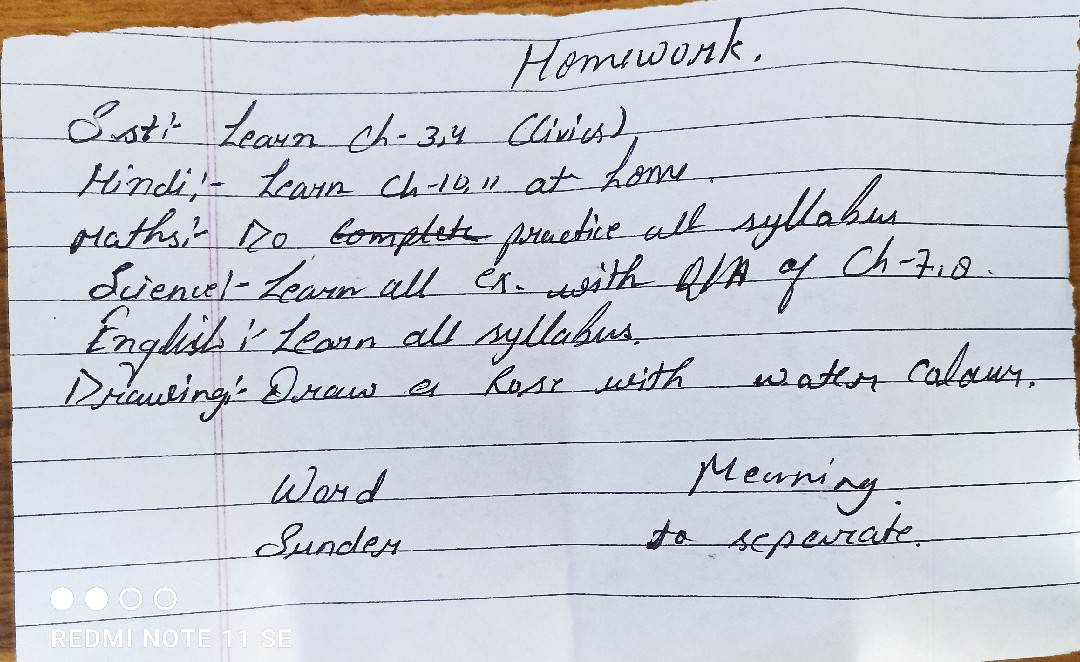 Homework.
Sst:- Learn Ch-3,4 (Civics),
Hindi:- Learn Ch-10,11 at home.
Maths:- Do complete practice all syllabus
Science:- Learn all ex. with Q/A of Ch-7,8.
English:- Learn all syllabus.
Drawing:- Draw a Rose with water colour.
Word Meaning.
Sunder to seperate.
REDMI NOTE 11 SE